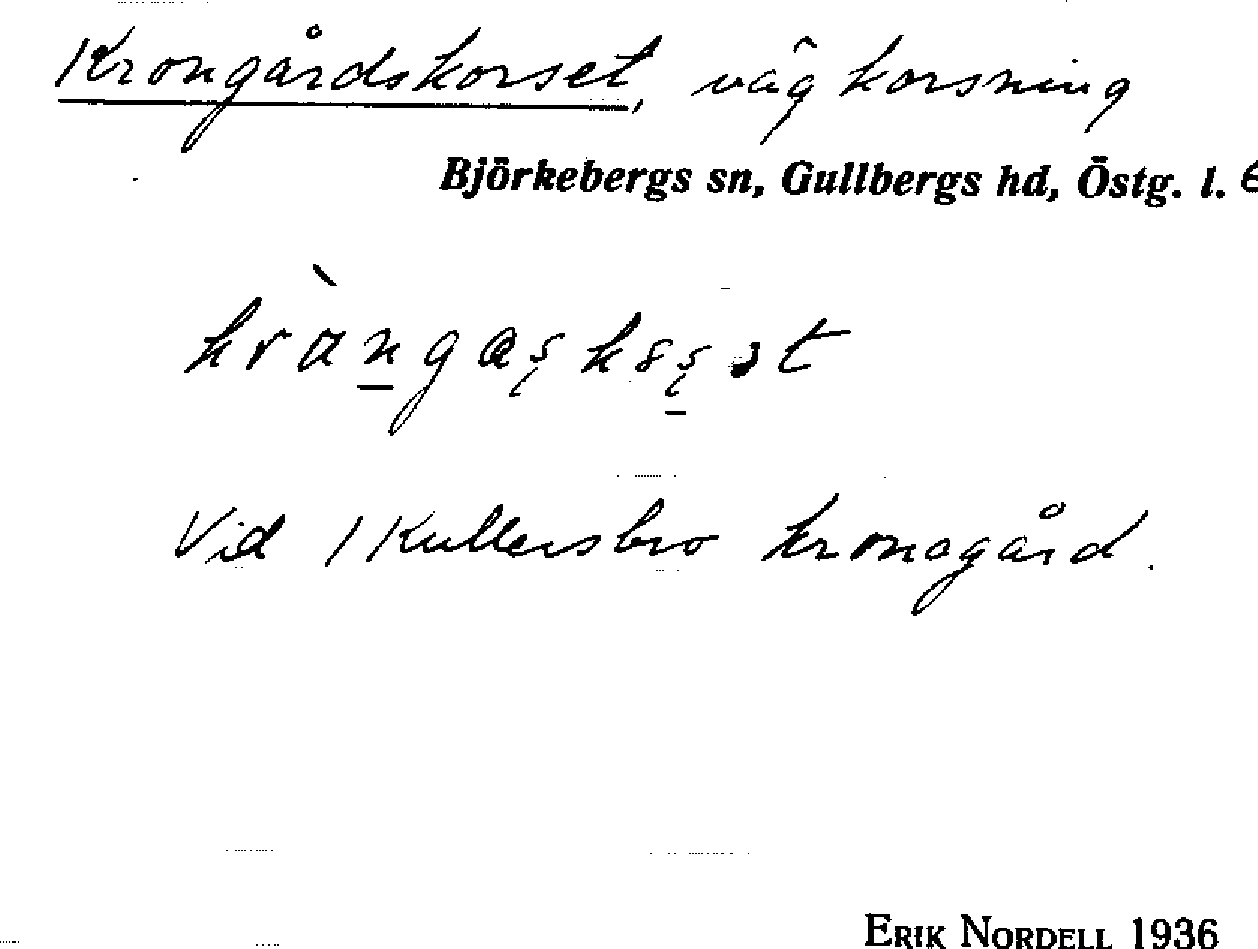 Krongårdskorset, vägkorsning
Björkebergs sn, Gullbergs hd, Östg. l.
Vid Kullersbro kronogård.
ERIK NORDELL 1936